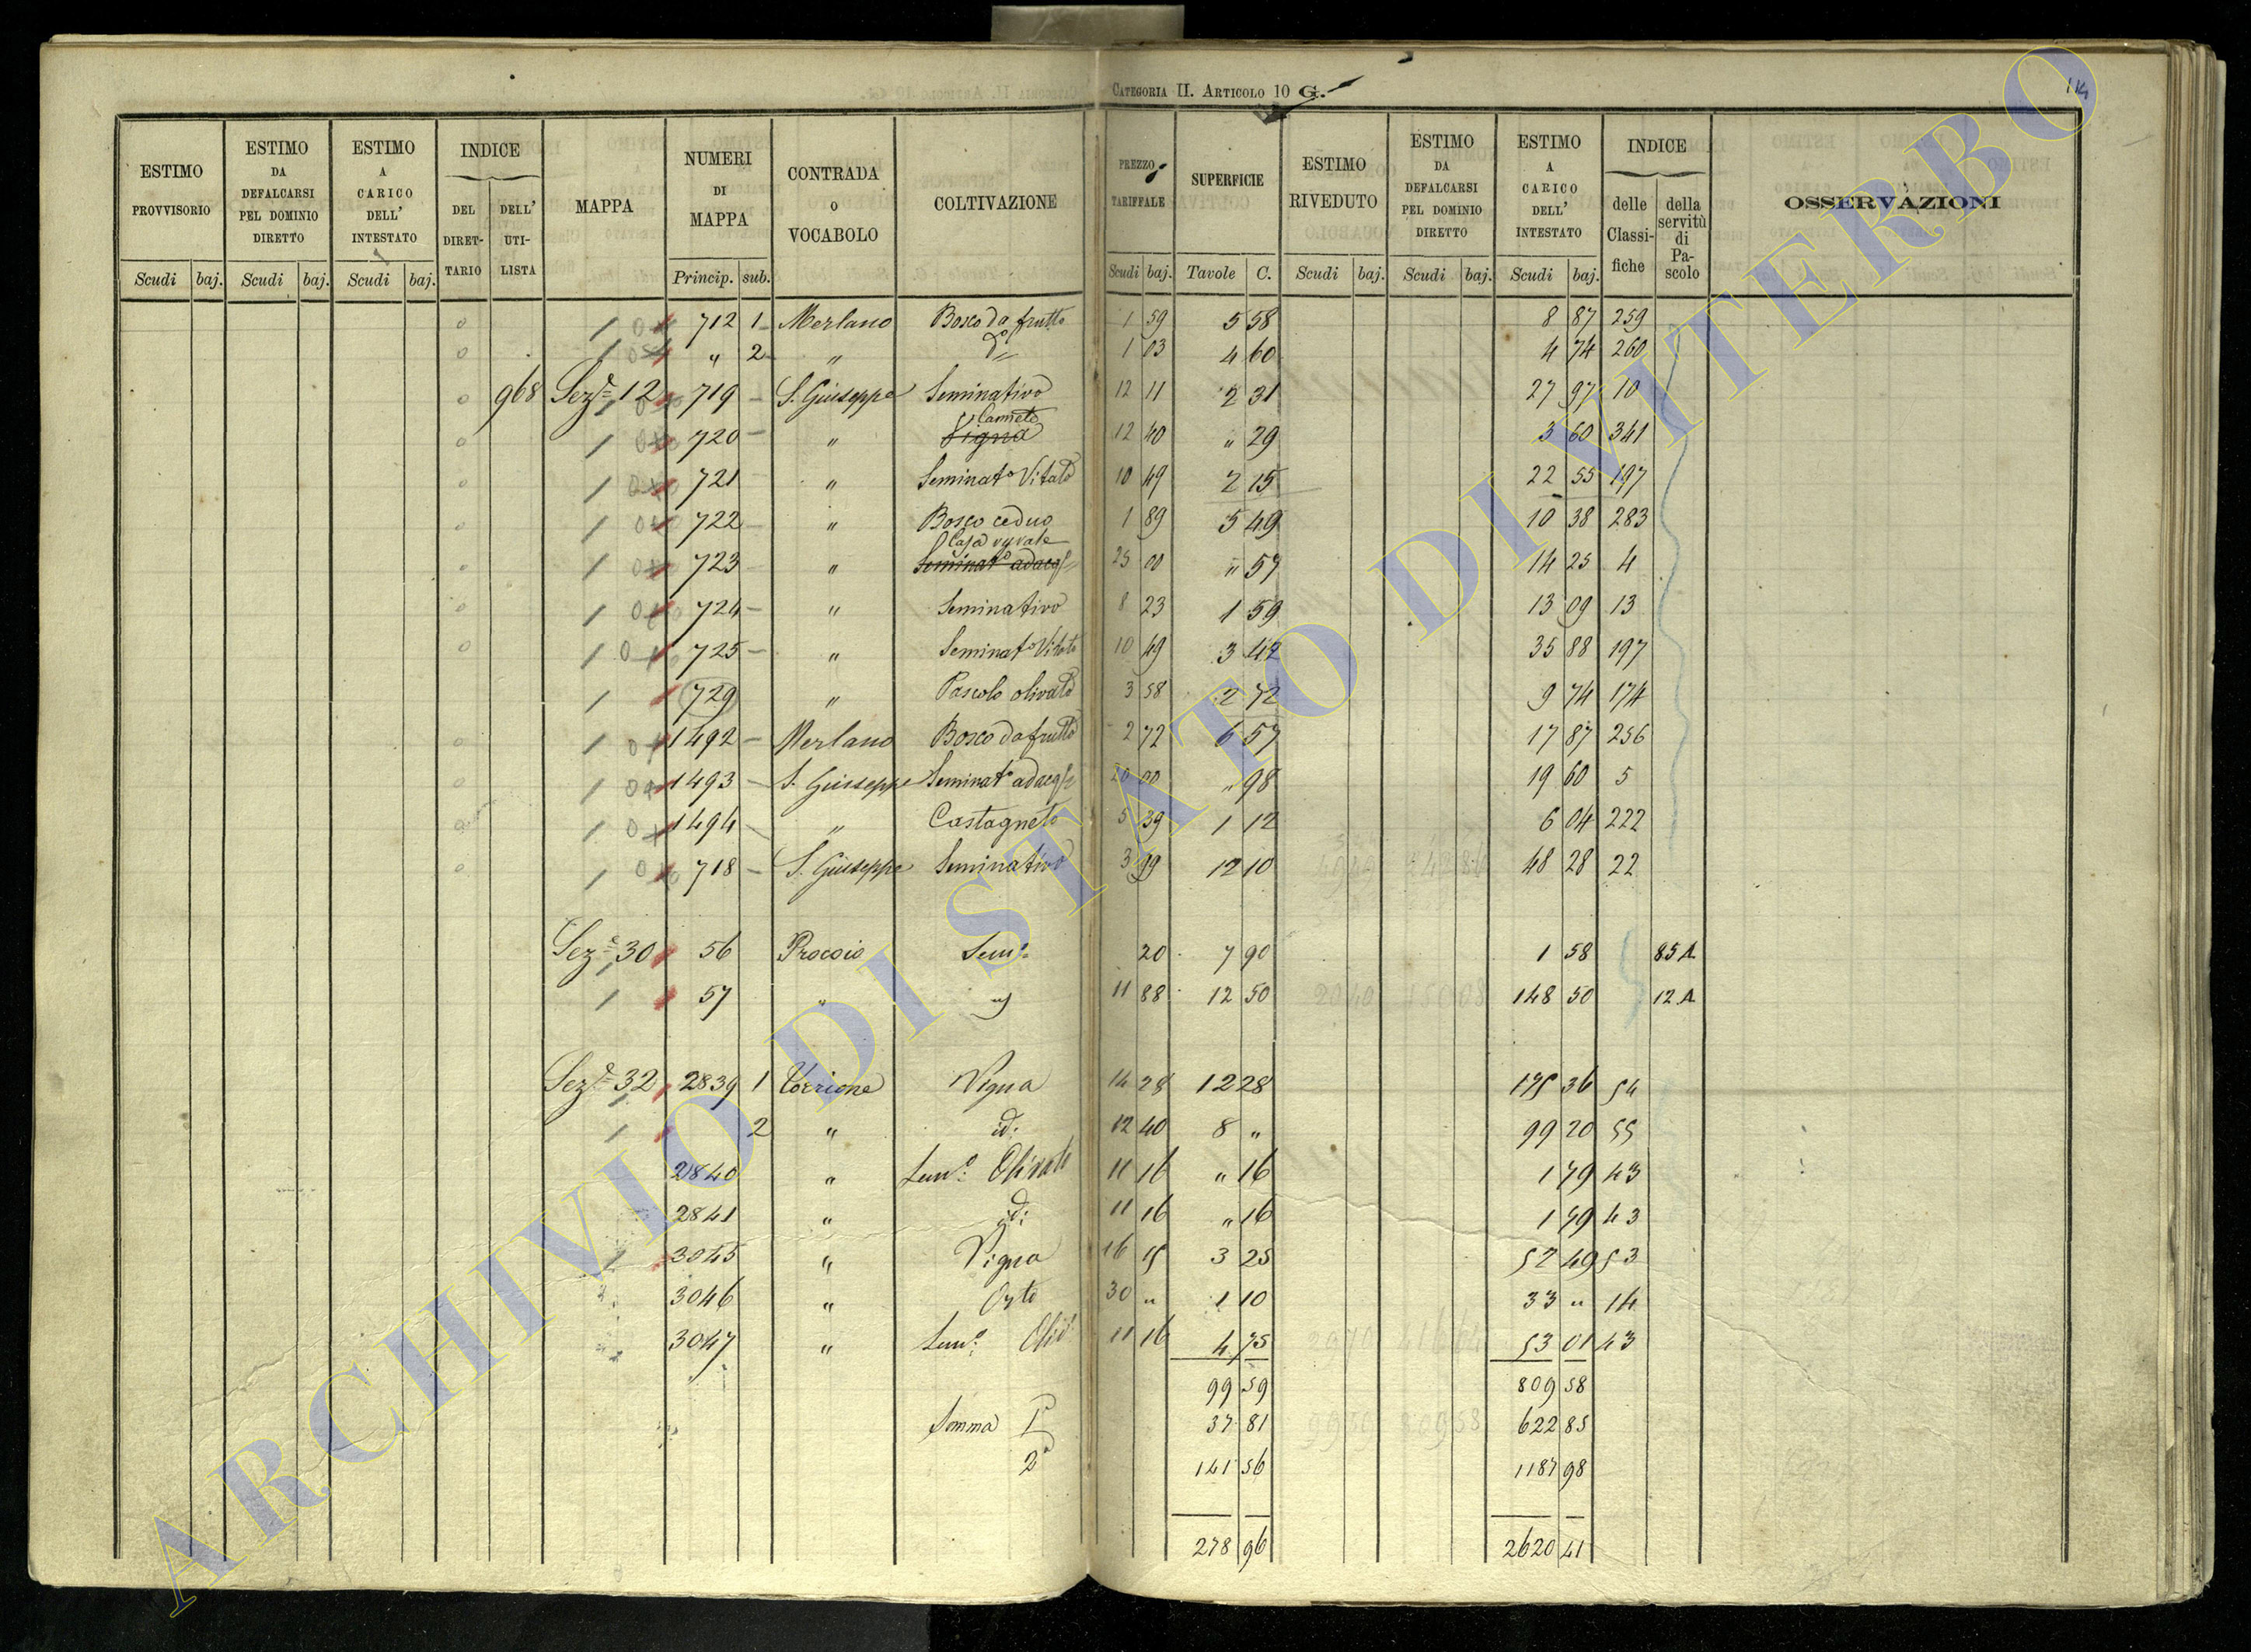 CATEGORIA II. ARTICOLO 10 G.
114
ESTIMO PROVVISORIO Scudi baj.
ESTIMO DA DEFALCARSI PEL DOMINIO DIRETTO Scudi baj.
ESTIMO A CARICO DELL' INTESTATO Scudi baj.
INDICE DEL DIRETTARIO DELL' UTILISTA
MAPPA
NUMERI DI MAPPA Princip. sub.
CONTRADA O VOCABOLO
COLTIVAZIONE
PREZZO TARIFFALE Scudi baj.
SUPERFICIE Tavole C.
ESTIMO RIVEDUTO Scudi baj.
ESTIMO DA DEFALCARSI PEL DOMINIO DIRETTO Scudi baj.
ESTIMO A CARICO DELL' INTESTATO Scudi baj.
INDICE delle Classifiche della servitù di Pascolo
OSSERVAZIONI
712 1 Merlano Bosco da frutto 1 59 5 58 8 87 259
" 2 " d.° 1 03 4 60 4 74 260
968 Sez.e 12 719 S. Giuseppe Seminativo 12 11 2 31 27 97 10
720 " Vigna Canneto 12 40 " 29 3 60 341
721 " Seminat° Vitato 10 49 2 15 22 55 197
722 " Bosco ceduo 1 89 5 49 10 38 283
723 " Seminat° adacq Casa 25 00 " 57 14 25 4
724 " Seminativo 8 23 1 59 13 09 13
725 " Seminat° Vitato 10 49 3 42 35 88 197
729 " Pascolo olivato 3 58 2 72 9 74 174
1492 Merlano Bosco da frutto 2 72 6 57 17 87 256
1493 S. Giuseppe Seminat° adacq 20 00 " 98 19 60 5
1494 " Castagneto 5 39 1 12 6 04 222
718 S. Giuseppe Seminativo 3 99 12 10 48 28 22
Sez.e 30 56 Procoio Sem.° 20 7 90 1 58 85 A
57 " 11 88 12 50 148 50 12 A
Sez.e 32 2839 1 Torrione Vigna 14 28 12 28 175 36 54
2 " id. 12 40 8 " 99 20 55
2840 " Sem.° Olivato 11 16 " 16 1 79 43
2841 " id. 11 16 " 16 1 79 43
3045 " Vigna 16 15 3 25 52 49 53
3046 " Orto 30 " 1 10 33 " 14
3047 " Sem.° Oliv. 11 16 4 75 53 01 43
99 59 809 58
Somma 1a 37 81 622 85
2a 141 56 1187 98
278 96 2620 41
ARCHIVIO DI STATO DI VITERBO